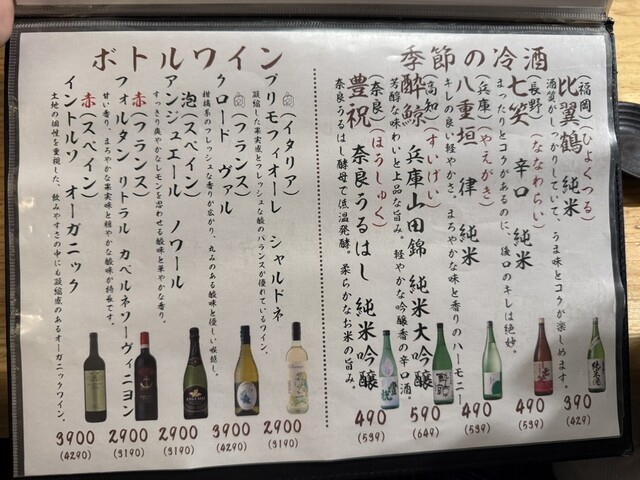 季節の冷酒
(福岡)(ひよくつる)
比翼鶴 純米
酒質がしっかりしていて、うま味とコクが楽しめます。
390
(429)
(長野)(ななわらい)
七笑 辛口 純米
まったりとコクがあるのに、後口のキレは絶妙。
490
(539)
(兵庫)(やえがき)
八重垣 律 純米
キレの良い軽やかさ。まろやかな味と香りのハーモニー
490
(539)
(高知)(すいげい)
酔鯨 兵庫山田錦 純米大吟醸
芳醇な味わいと上品な旨み。軽やかな吟醸香の辛口酒
590
(649)
(奈良)(ほうしゅく)
豊祝 奈良うるはし 純米吟醸
奈良うるはし酵母で低温発酵。柔らかなお米の旨み。
490
(539)
ボトルワイン
白(イタリア)
プリモフィオーレ シャルドネ
凝縮した果実感とフレッシュな酸のバランスが優れているワイン。
2900
(3190)
白(フランス)
クロード ヴァル
柑橘系のフレッシュな香りが広がり、丸みのある酸味と優しい喉越し。
3900
(4290)
泡(スペイン)
アンジュエール ノワール
すっきり爽やかなレモンを思わせる酸味と華やかな香り。
2900
(3190)
赤(フランス)
フォルタン リトラル カベルネソーヴィニヨン
甘い香り、まろやかな果実味と穏やかな酸味が特長です。
2900
(3190)
赤(スペイン)
イントルソ オーガニック
土地の個性を重視した、飲みやすさの中にも凝縮感のあるオーガニックワイン。
3900
(4290)